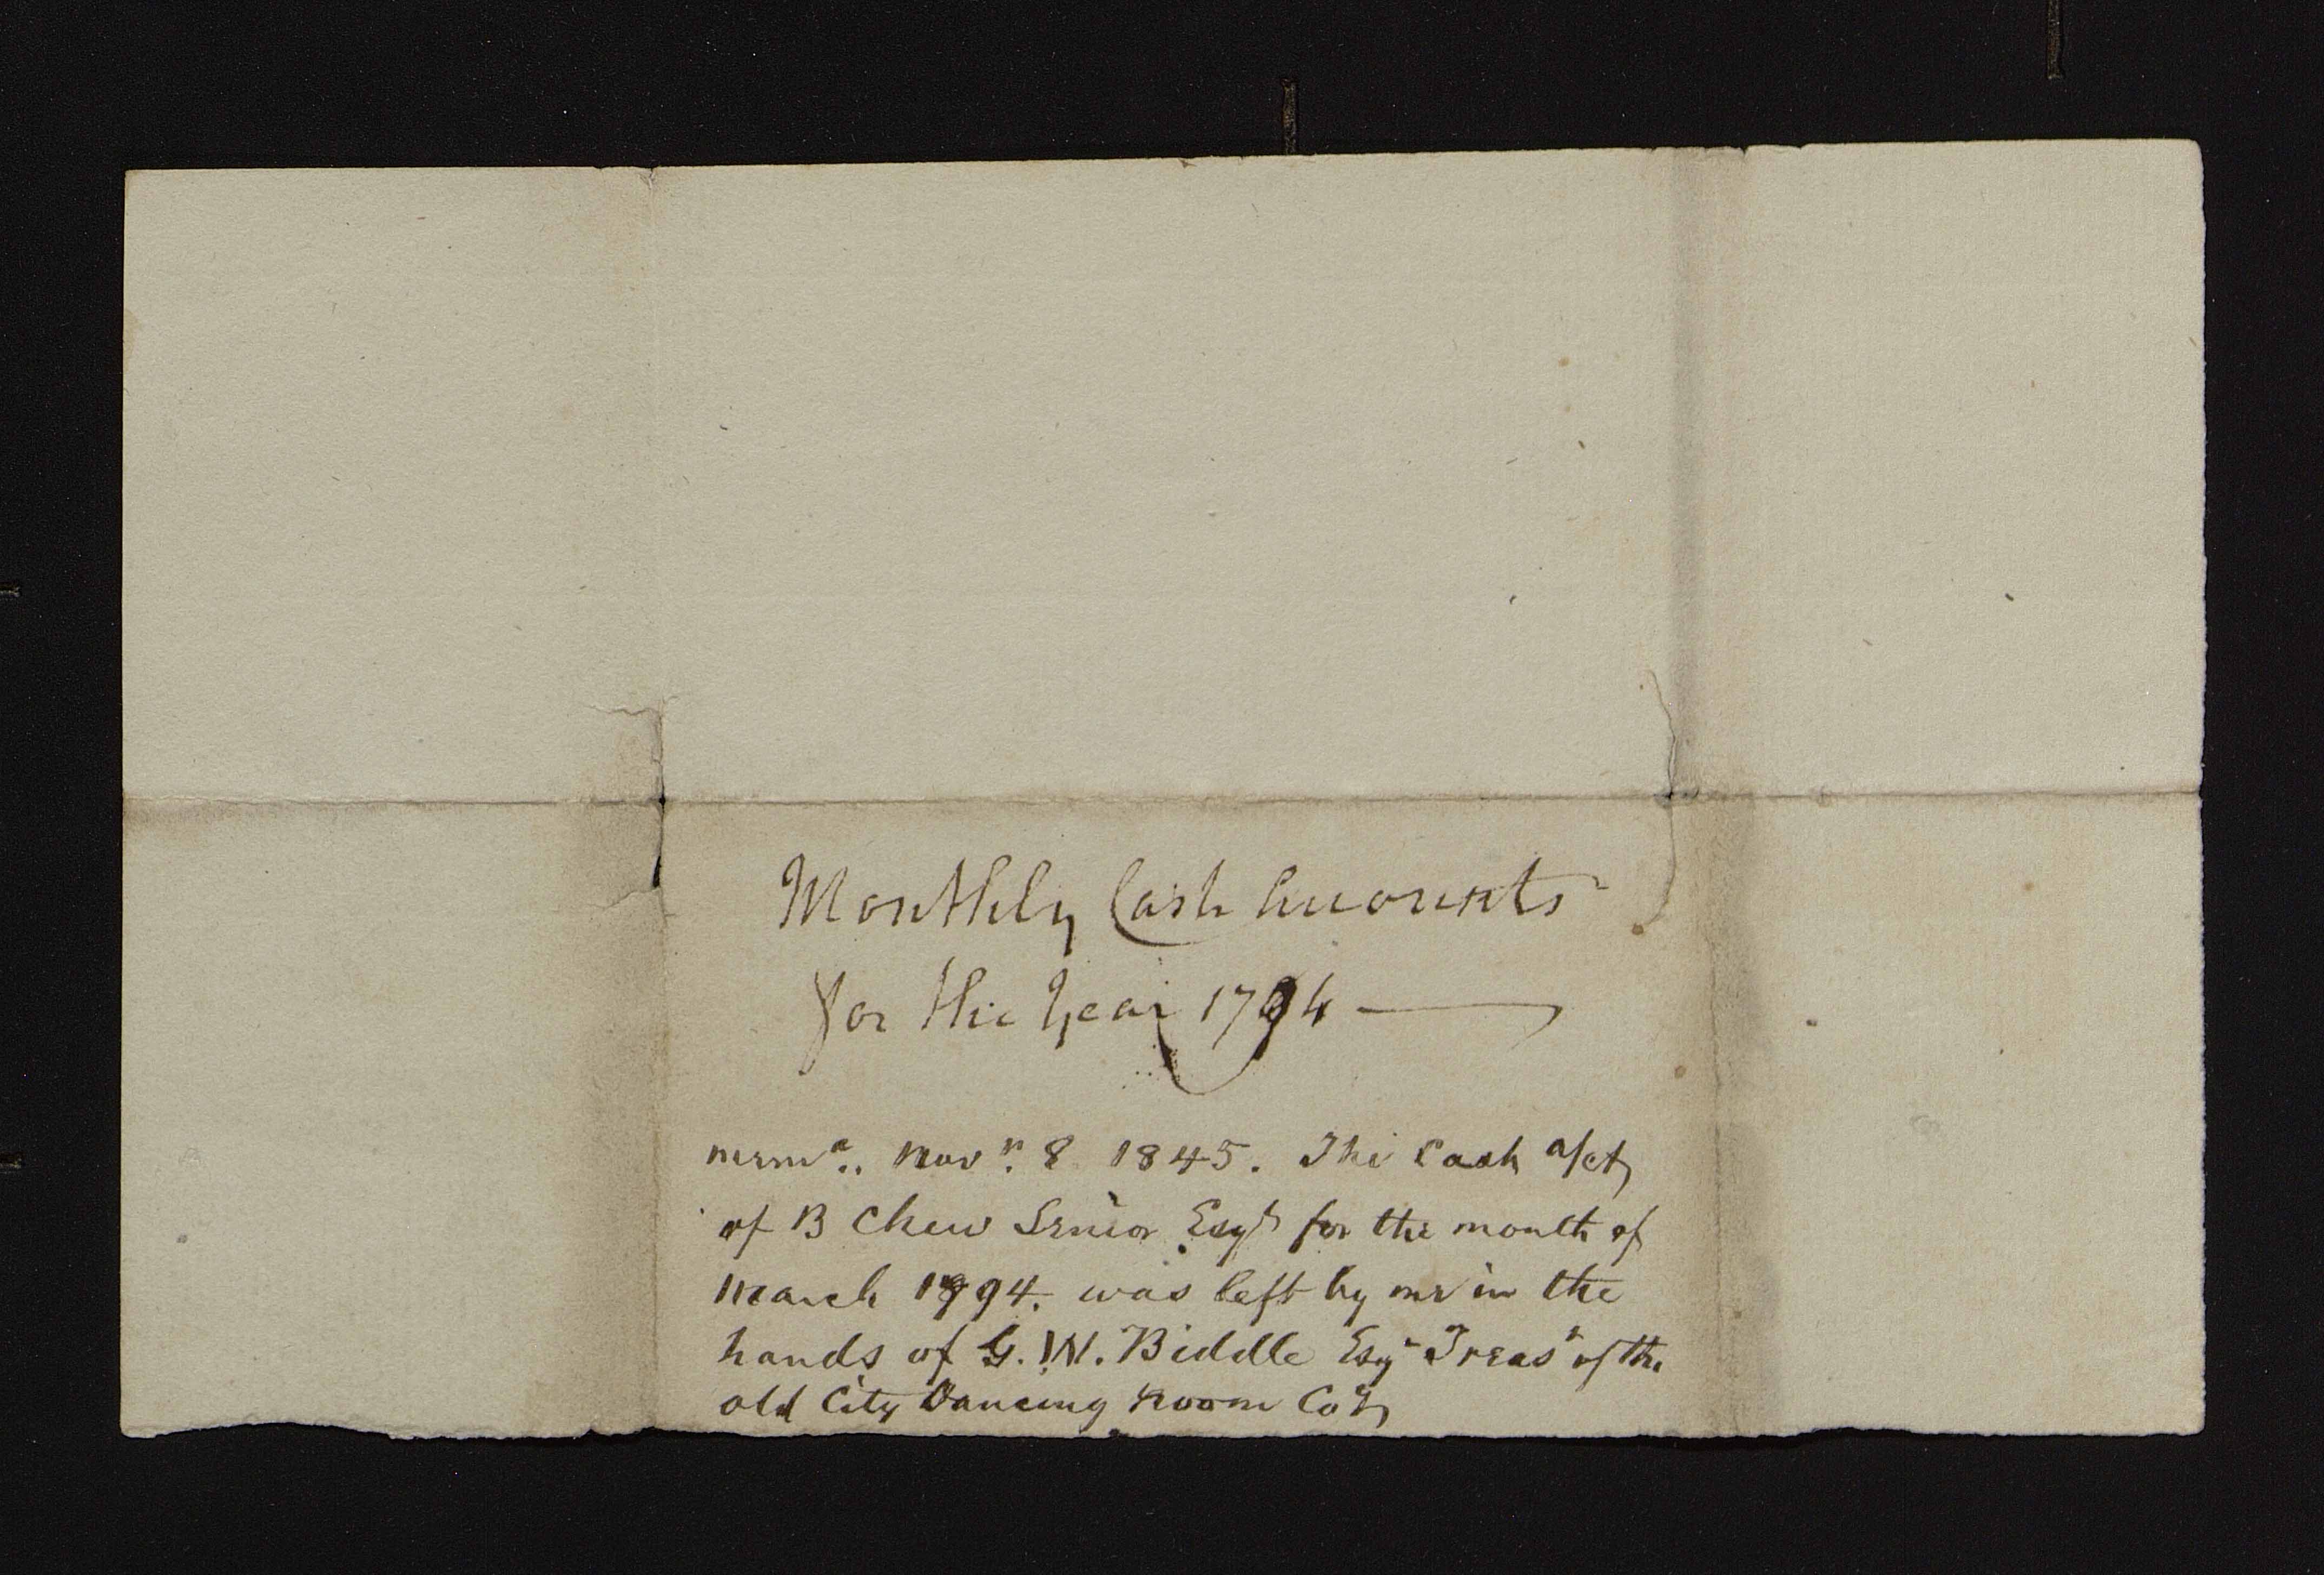 Monthly Cash Accounts
for the Year 1794
mema.. Novr. 8 1845. The Cash a/ct,
of B Chew Senior Esqr for the month of
March 1794. was left by me in the
hands of G. W. Biddle Esqr Treasr of the
old City Dancing Room Coy,